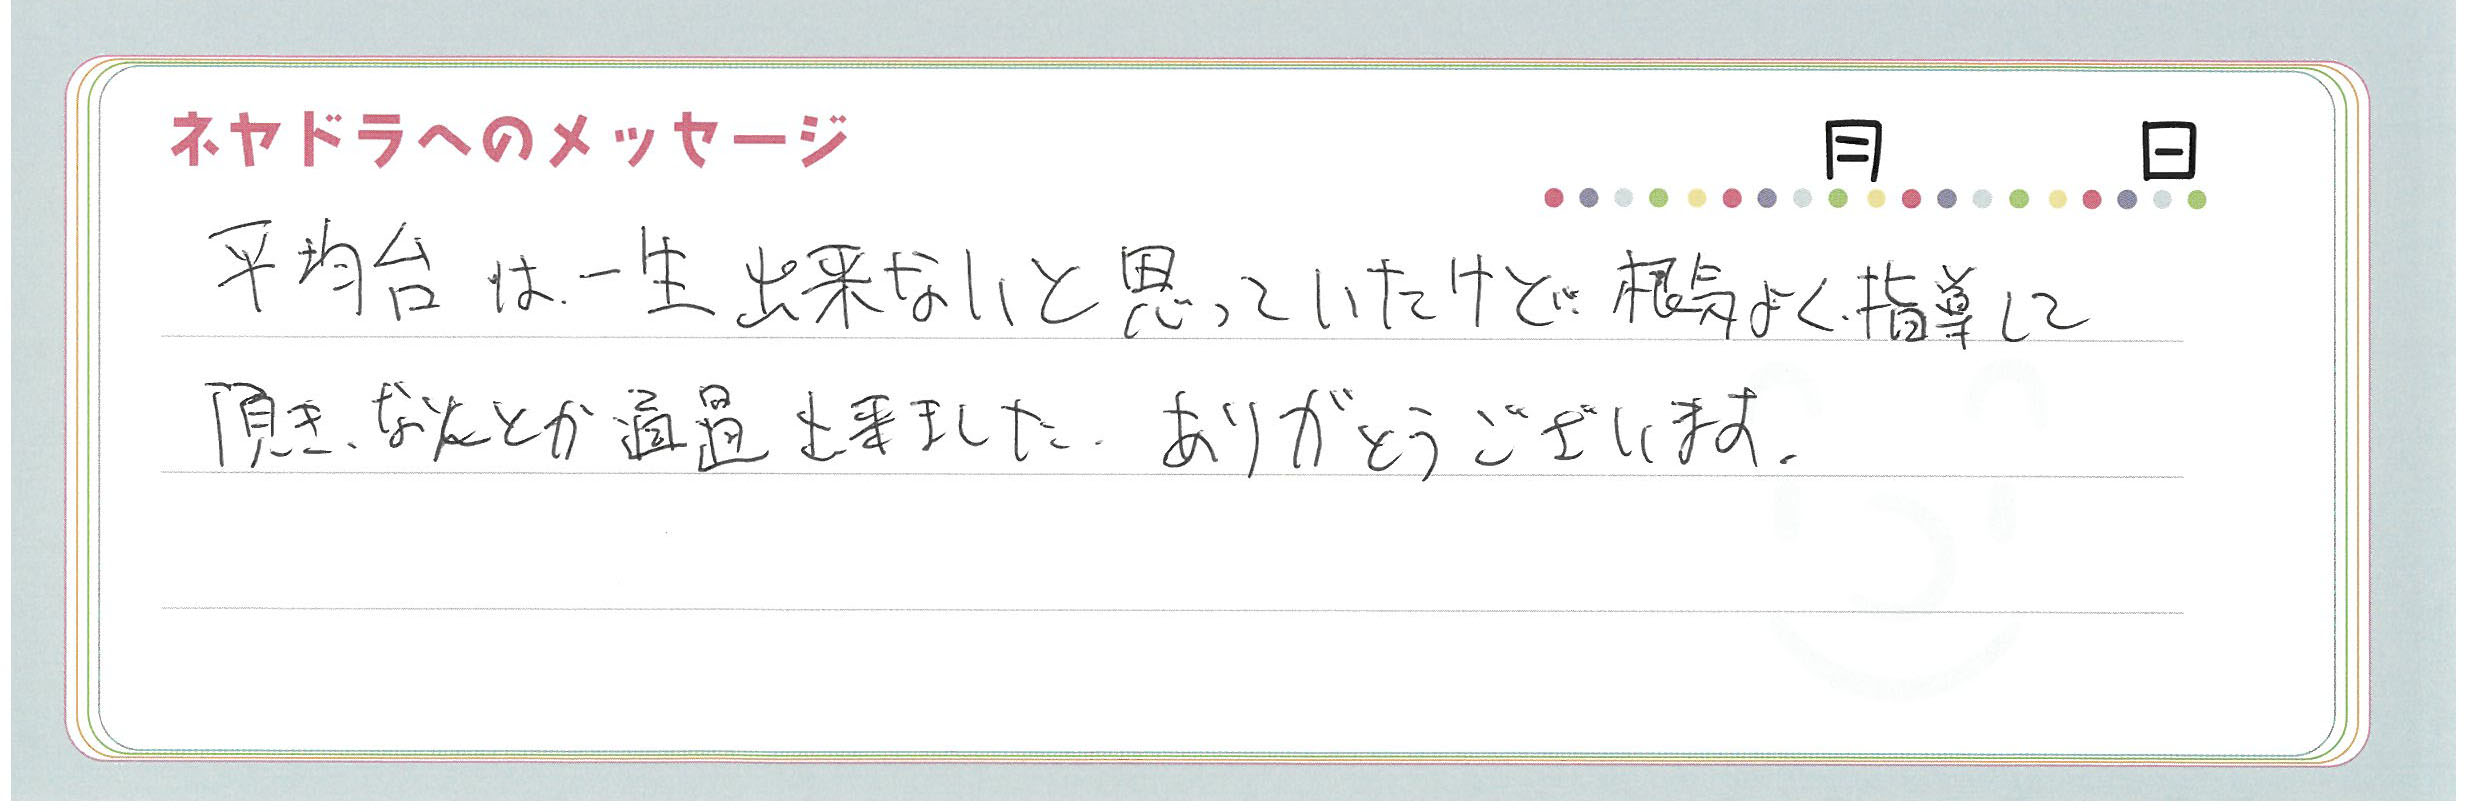 ネヤドラへのメッセージ
月 日
平均台は、一生出来ないと思っていたけど、根気よく、指導して
頂き、なんとか通過出来ました。ありがとうございます。